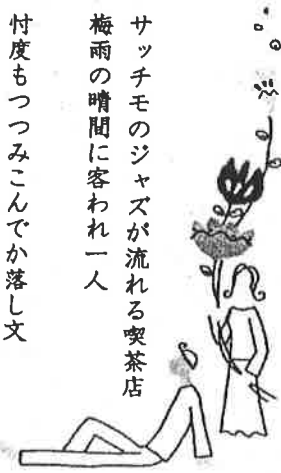 サッチモのジャズが流れる喫茶店
梅雨の晴間に客われ一人
忖度もつつみこんでか落し文